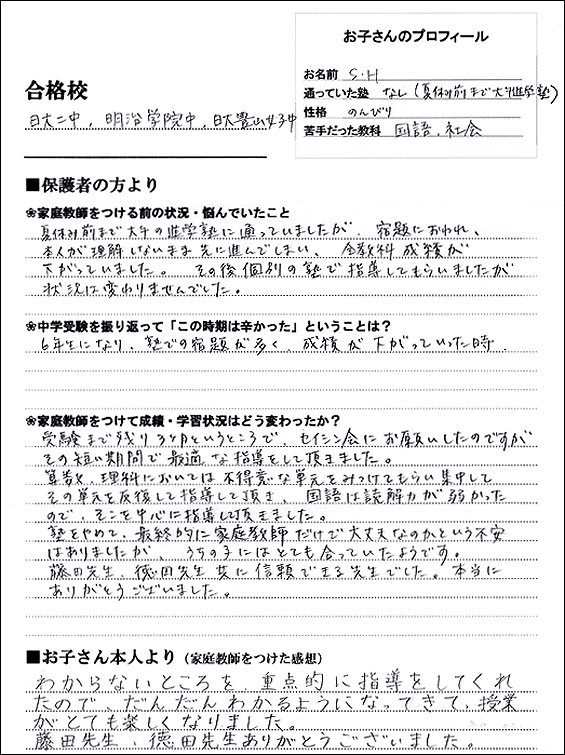 お子さんのプロフィール
お名前 S.H
通っていた塾 なし(夏休み前まで大手進学塾)
性格 のんびり
苦手だった教科 国語、社会
合格校
日大二中, 明治学院中, 日大豊山女子中
■保護者の方より
❀家庭教師をつける前の状況・悩んでいたこと
夏休み前まで大手の進学塾に通っていましたが、宿題におわれ、
本人が理解しないまま先に進んでしまい、全教科成績が
下がっていました。その後個別の塾で指導してもらいましたが
状況は変わりませんでした。
❀中学受験を振り返って「この時期は辛かった」ということは?
6年生になり、塾での宿題が多く、成績が下がっていった時.
❀家庭教師をつけて成績・学習状況はどう変わったか?
受験まで残り3ヶ月というところで、セイシン会にお願いしたのですが
その短い期間で最適な指導をして頂きました。
算数、理科においては不得意な単元をみつけてもらい集中して
その単元を反復して指導して頂き、国語は読解力が弱かった
ので、そこを中心に指導して頂きました。
塾をやめて、最終的に家庭教師だけで大丈夫なのかという不安
はありましたが、うちの子にはとても合っていたようです。
藤田先生、徳田先生共に信頼できる先生でした。本当に
ありがとうございました。
■お子さん本人より(家庭教師をつけた感想)
わからないところを、重点的に指導をしてくれ
たので、だんだんわかるようになってきて、授業
がとても楽しくなりました。
藤田先生、徳田先生ありがとうございました。